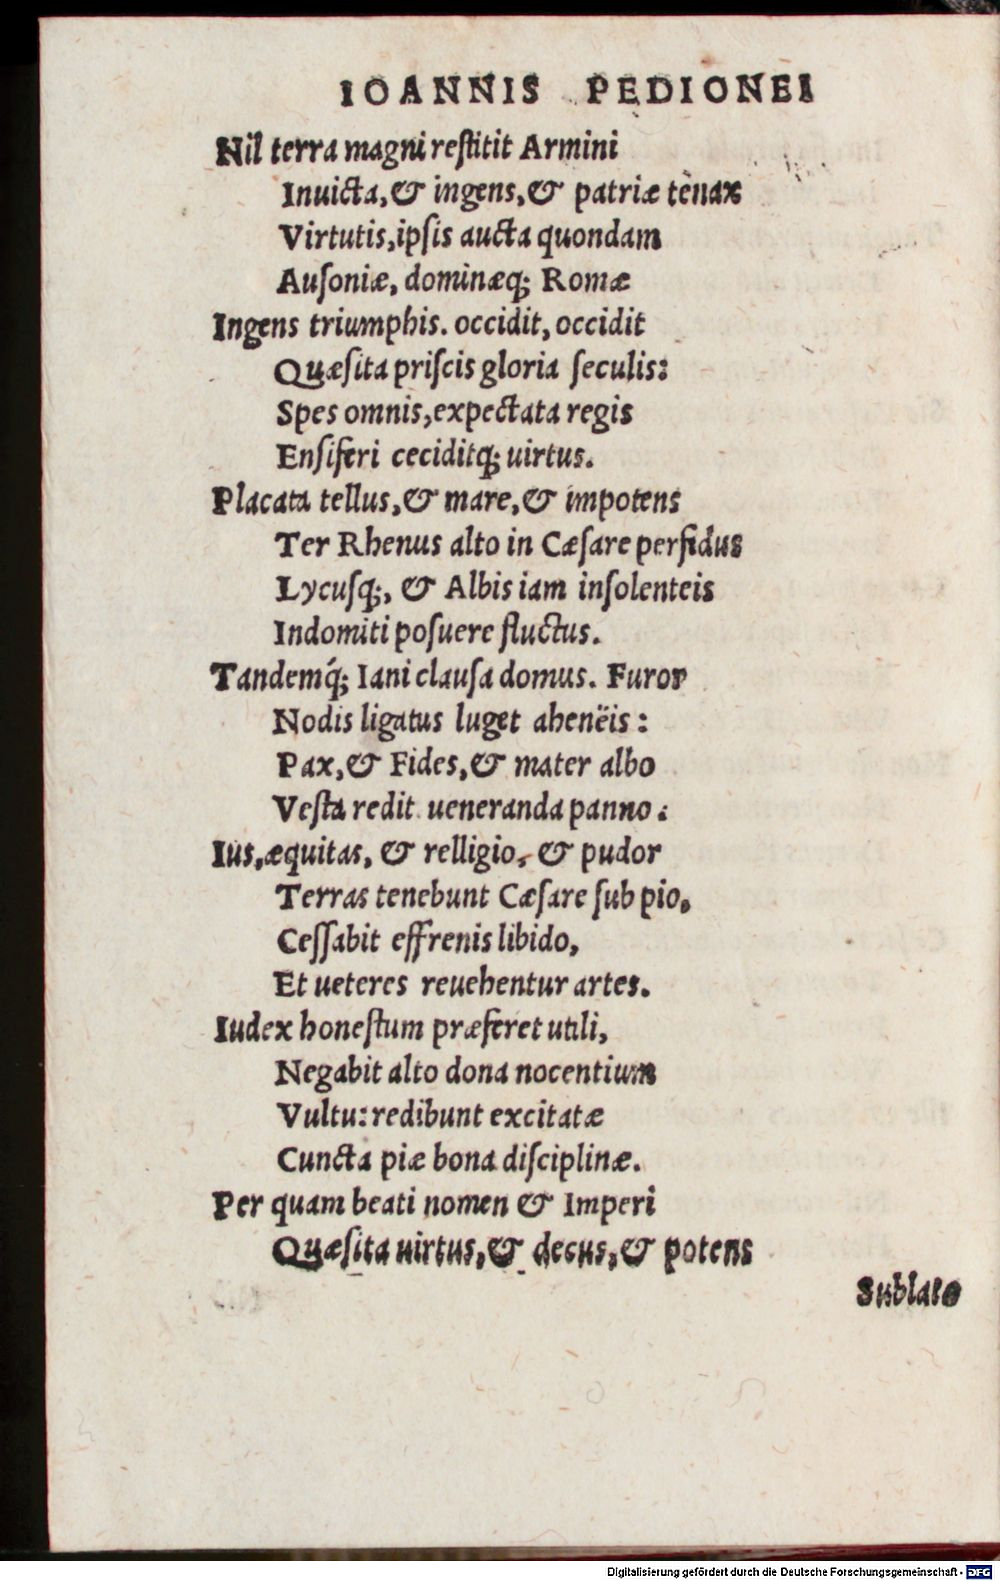 IOANNIS PEDIONEI
Nil terra magni reſtitit Armini
Inuicta, & ingens, & patriæ tenax
Virtutis, ipſis aucta quondam
Auſoniæ, dominæq; Romæ
Ingens triumphis. occidit, occidit
Quæſita priſcis gloria ſeculis:
Spes omnis, expectata regis
Enſiferi ceciditq; uirtus.
Placata tellus, & mare, & impotens
Ter Rhenus alto in Cæſare perfidus
Lycuſq;, & Albis iam inſolenteis
Indomiti poſuere fluctus.
Tandemq́; Iani clauſa domus. Furor
Nodis ligatus luget ahenëis:
Pax, & Fides, & mater albo
Veſta redit ueneranda panno:
Ius, æquitas, & relligio, & pudor
Terras tenebunt Cæſare ſub pio,
Ceſſabit effrenis libido,
Et ueteres reuehentur artes.
Iudex honeſtum præferet utili,
Negabit alto dona nocentium
Vultu: redibunt excitatæ
Cuncta piæ bona diſciplinæ.
Per quam beati nomen & Imperi
Quæſita uirtus, & decus, & potens
Sublato
Digitalisierung gefördert durch die Deutsche Forschungsgemeinschaft - DFG